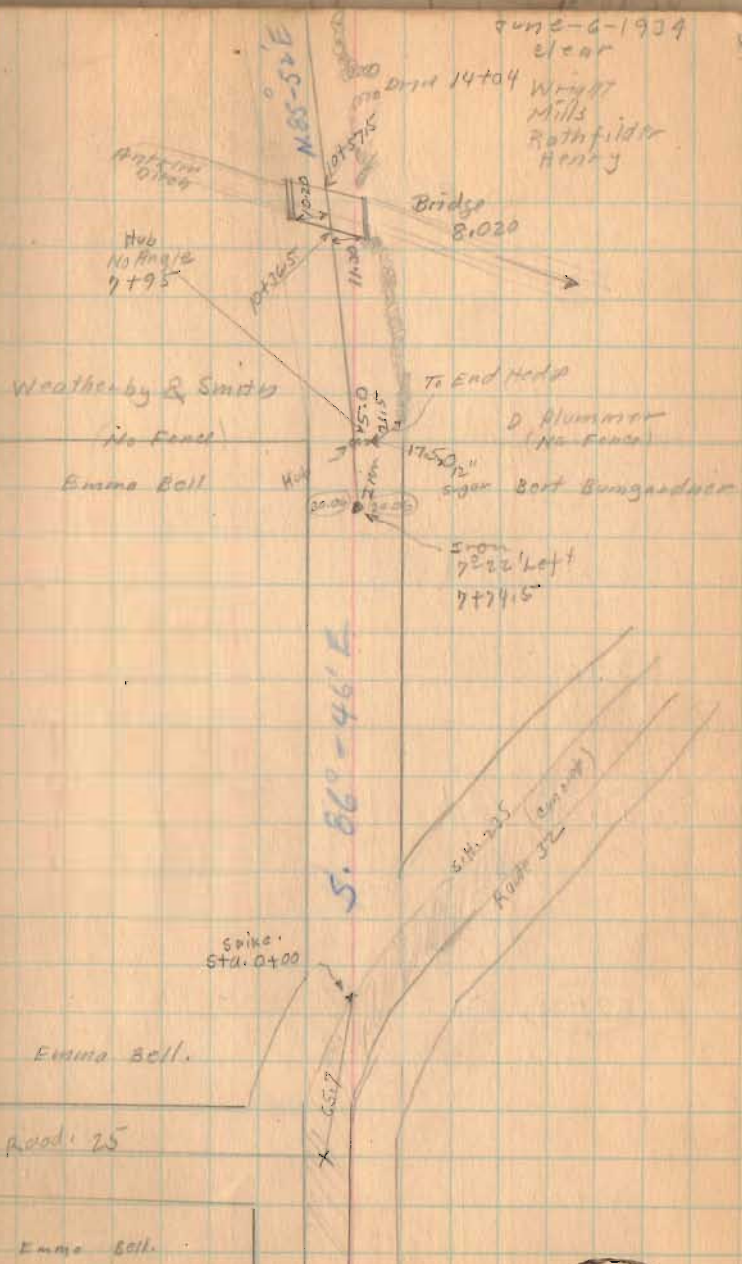 June-6-1934
Clear
Wright
Mills
Rothfilder
Henry
N.85°-52'E
Drive 14+04
10+57.5
Antrim
Ditch
10.20
Bridge
8.020
Hub
No Angle
7+95
10+36.5
11.30
Weatherby & Smith
To End Hedge
5.0
21.5
D Plummer
(No Fence)
(No Fence)
17.5
12"
Sugar
Emma Bell
Hub
Bert Bumgardner
20.05
Iron
7°22' Left
7+74.5
S. 86°-46' E
S.H. 225
(Concrete)
Route 32
Spike.
Sta. 0+00
Emma Bell.
65.7
Road. 25
Emma Bell.